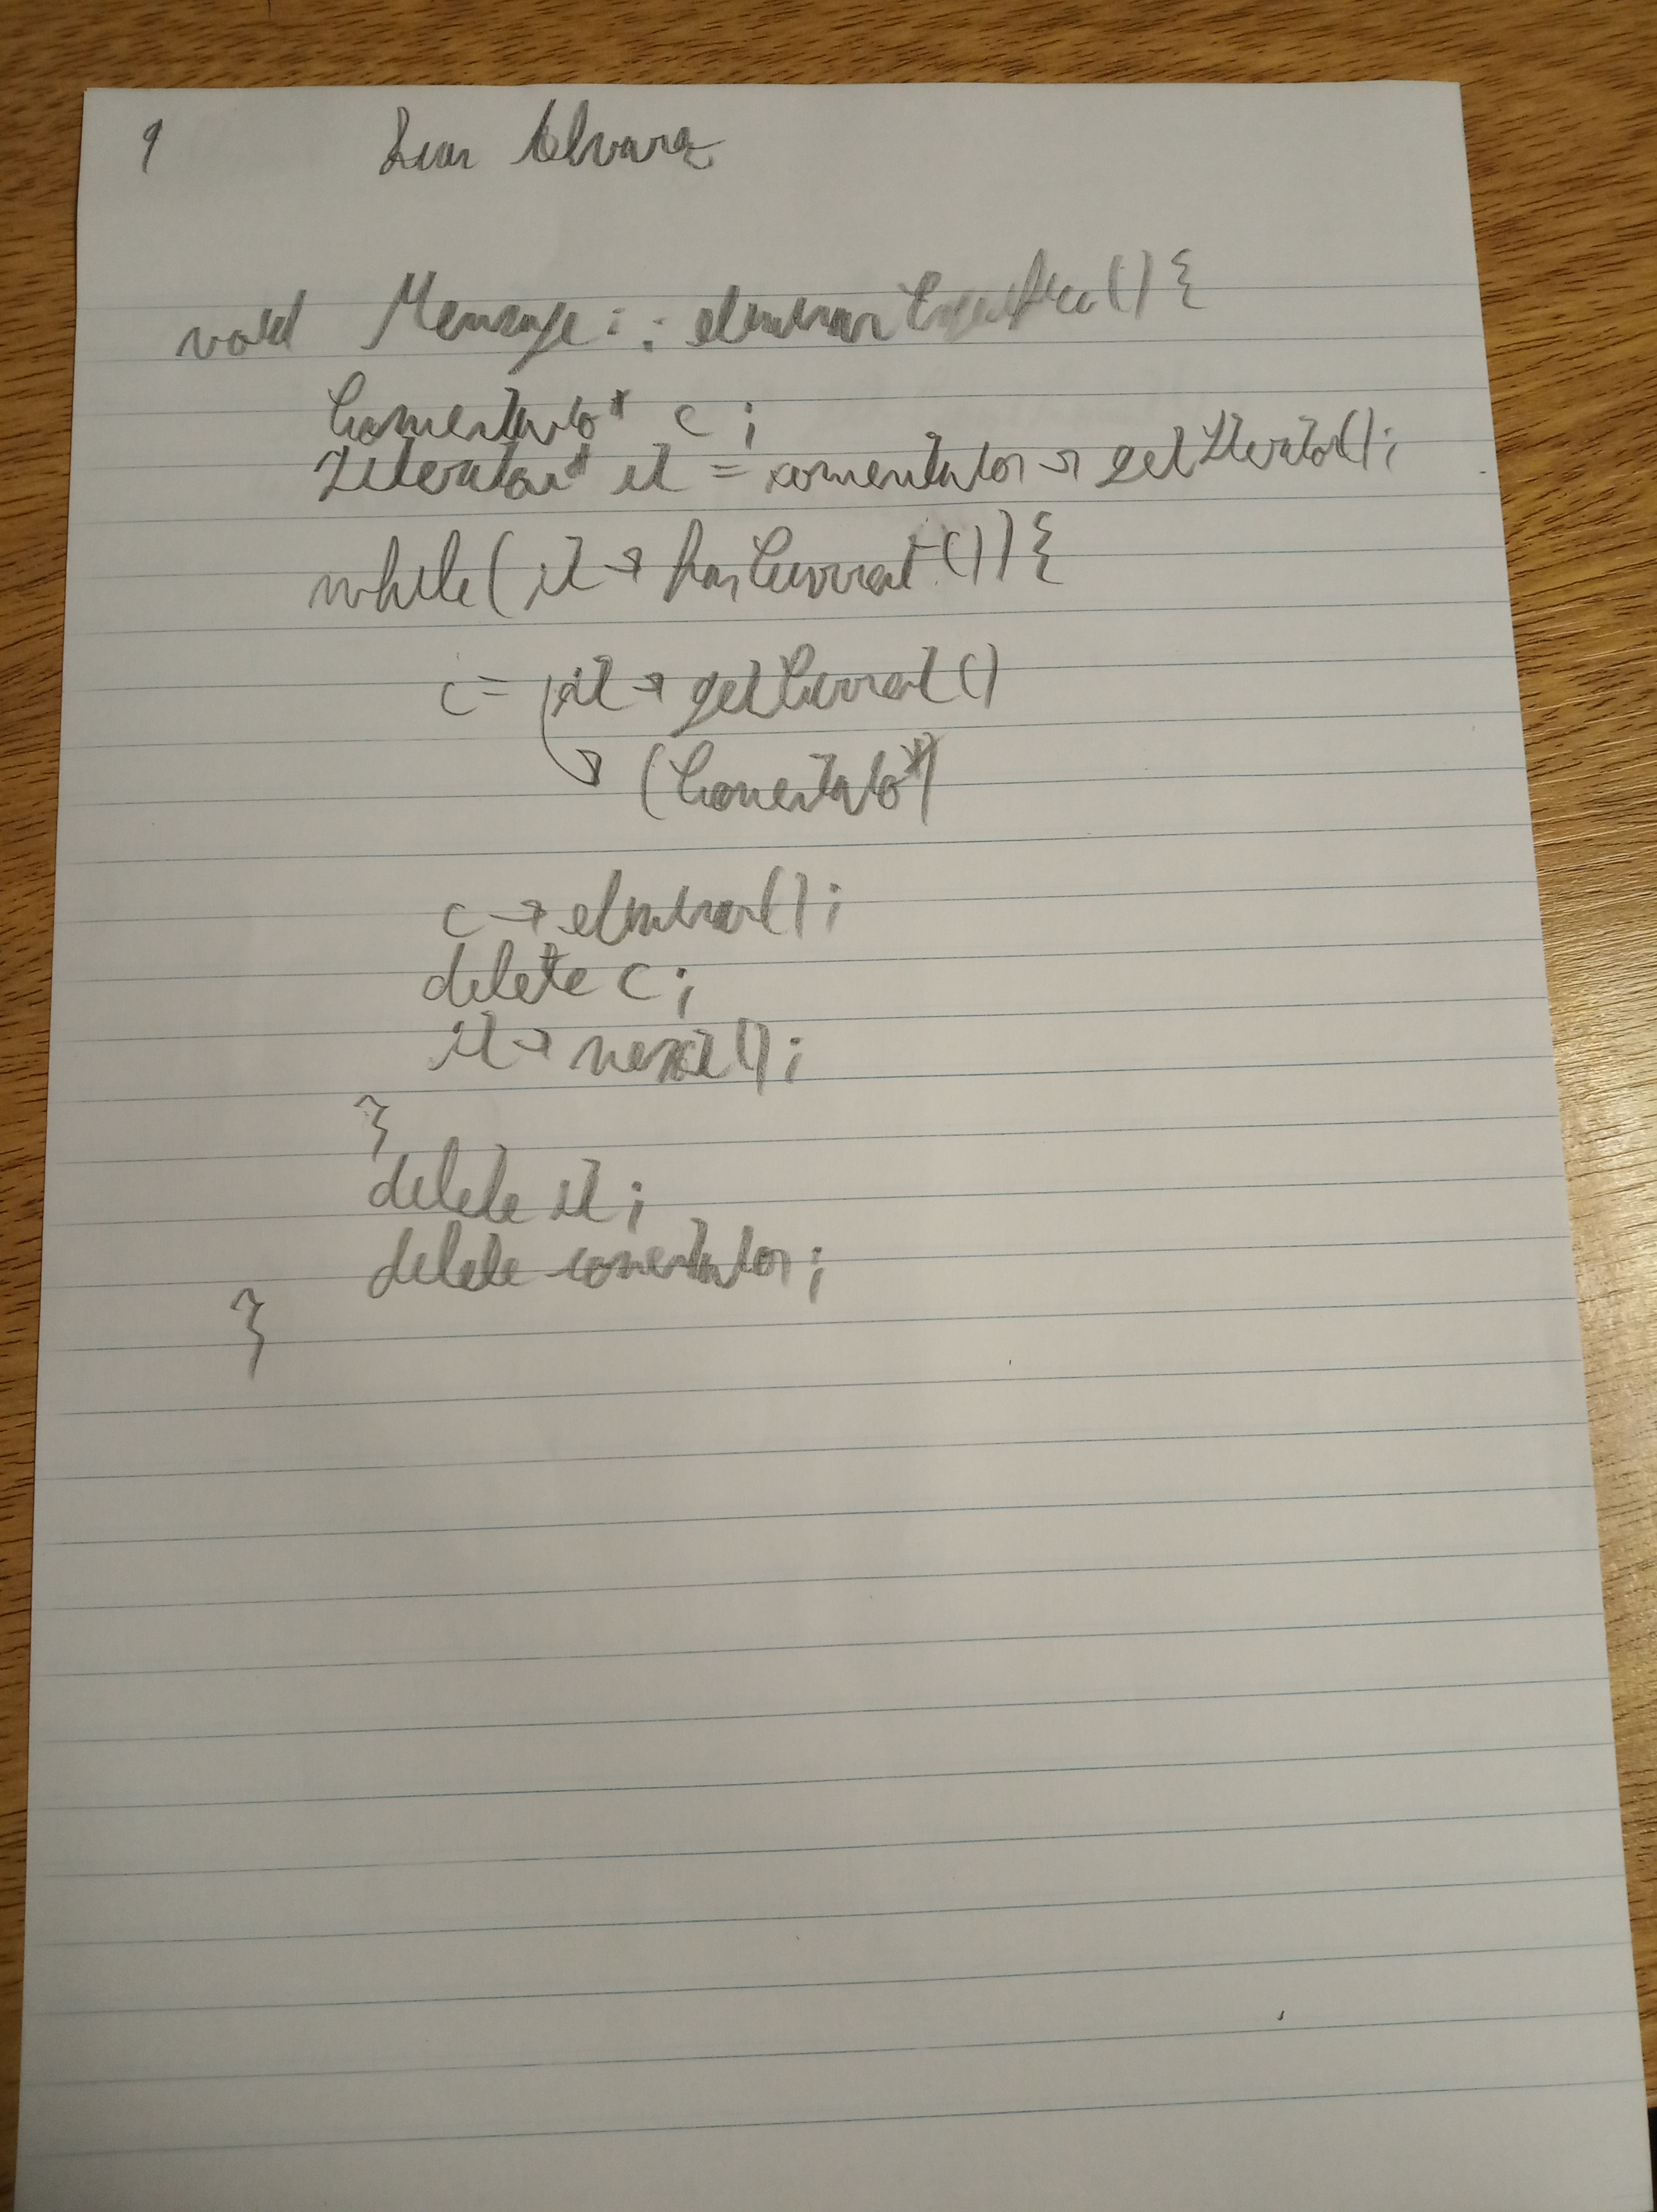 9 Juan Alvarez
void Mensaje::eliminarEspecifico(){
Comentario* c;
IIterator* it = comentarios->getIterator();
while(it->hasCurrent()){
c = it->getCurrent()
(Comentario*)
c->eliminar();
delete c;
it->next();
}
delete it;
delete comentarios;
}